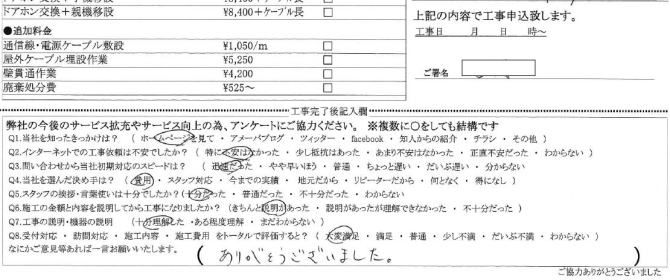 ドアホン交換＋親機移設 ¥8,400＋ケーブル長 □
●追加料金
通信線・電源ケーブル敷設 ¥1,050/m □
屋外ケーブル埋設作業 ¥5,250 □
壁貫通作業 ¥4,200 □
廃棄処分費 ¥525〜 □
上記の内容で工事申込致します。
工事日 月 日 時〜
ご署名
工事完了後記入欄
弊社の今後のサービス拡充やサービス向上の為、アンケートにご協力ください。 ※複数に○をしても結構です
Q1.当社を知ったきっかけは？ （ ホームページを見て ・ アメーバブログ ・ ツィッター ・ facebook ・ 知人からの紹介 ・ チラシ ・ その他 ）
Q2.インターネットでの工事依頼は不安でしたか？ （ 特に不安はなかった ・ 少し抵抗はあった ・ あまり不安はなかった ・ 正直不安だった ・ わからない ）
Q3.問い合わせから当社初期対応のスピードは？ （ 迅速だった ・ やや早いほう ・ 普通 ・ ちょっと遅い ・ だいぶ遅い ・ 分からない
Q4.当社を選んだ決め手は？ （ 費用 ・ スタッフ対応 ・ 今までの実績 ・ 地元だから ・ リピーターだから ・ 何となく ・ 得になし ）
Q5.スタッフの挨拶・言葉使いは十分でしたか？（ 十分だった ・ 普通だった ・ 不十分だった ・ わからない ）
Q6.施工の金額と内容を説明してから工事になりましたか？ （きちんと説明があった ・ 説明があったが理解できなかった ・ 不十分だった ）
Q7.工事の説明・機器の説明 （十分理解した ・ ある程度理解 ・ まだわからない ）
Q8.受付対応 ・ 訪問対応 ・ 施工内容 ・ 施工費用 をトータルで評価すると？ （ 大変満足 ・ 満足 ・ 普通 ・ 少し不満 ・ だいぶ不満 ・ わからない ）
なにかご意見等あれば一言お願いいたします。
（ ありがとうございました。 ）
ご協力ありがとうございました